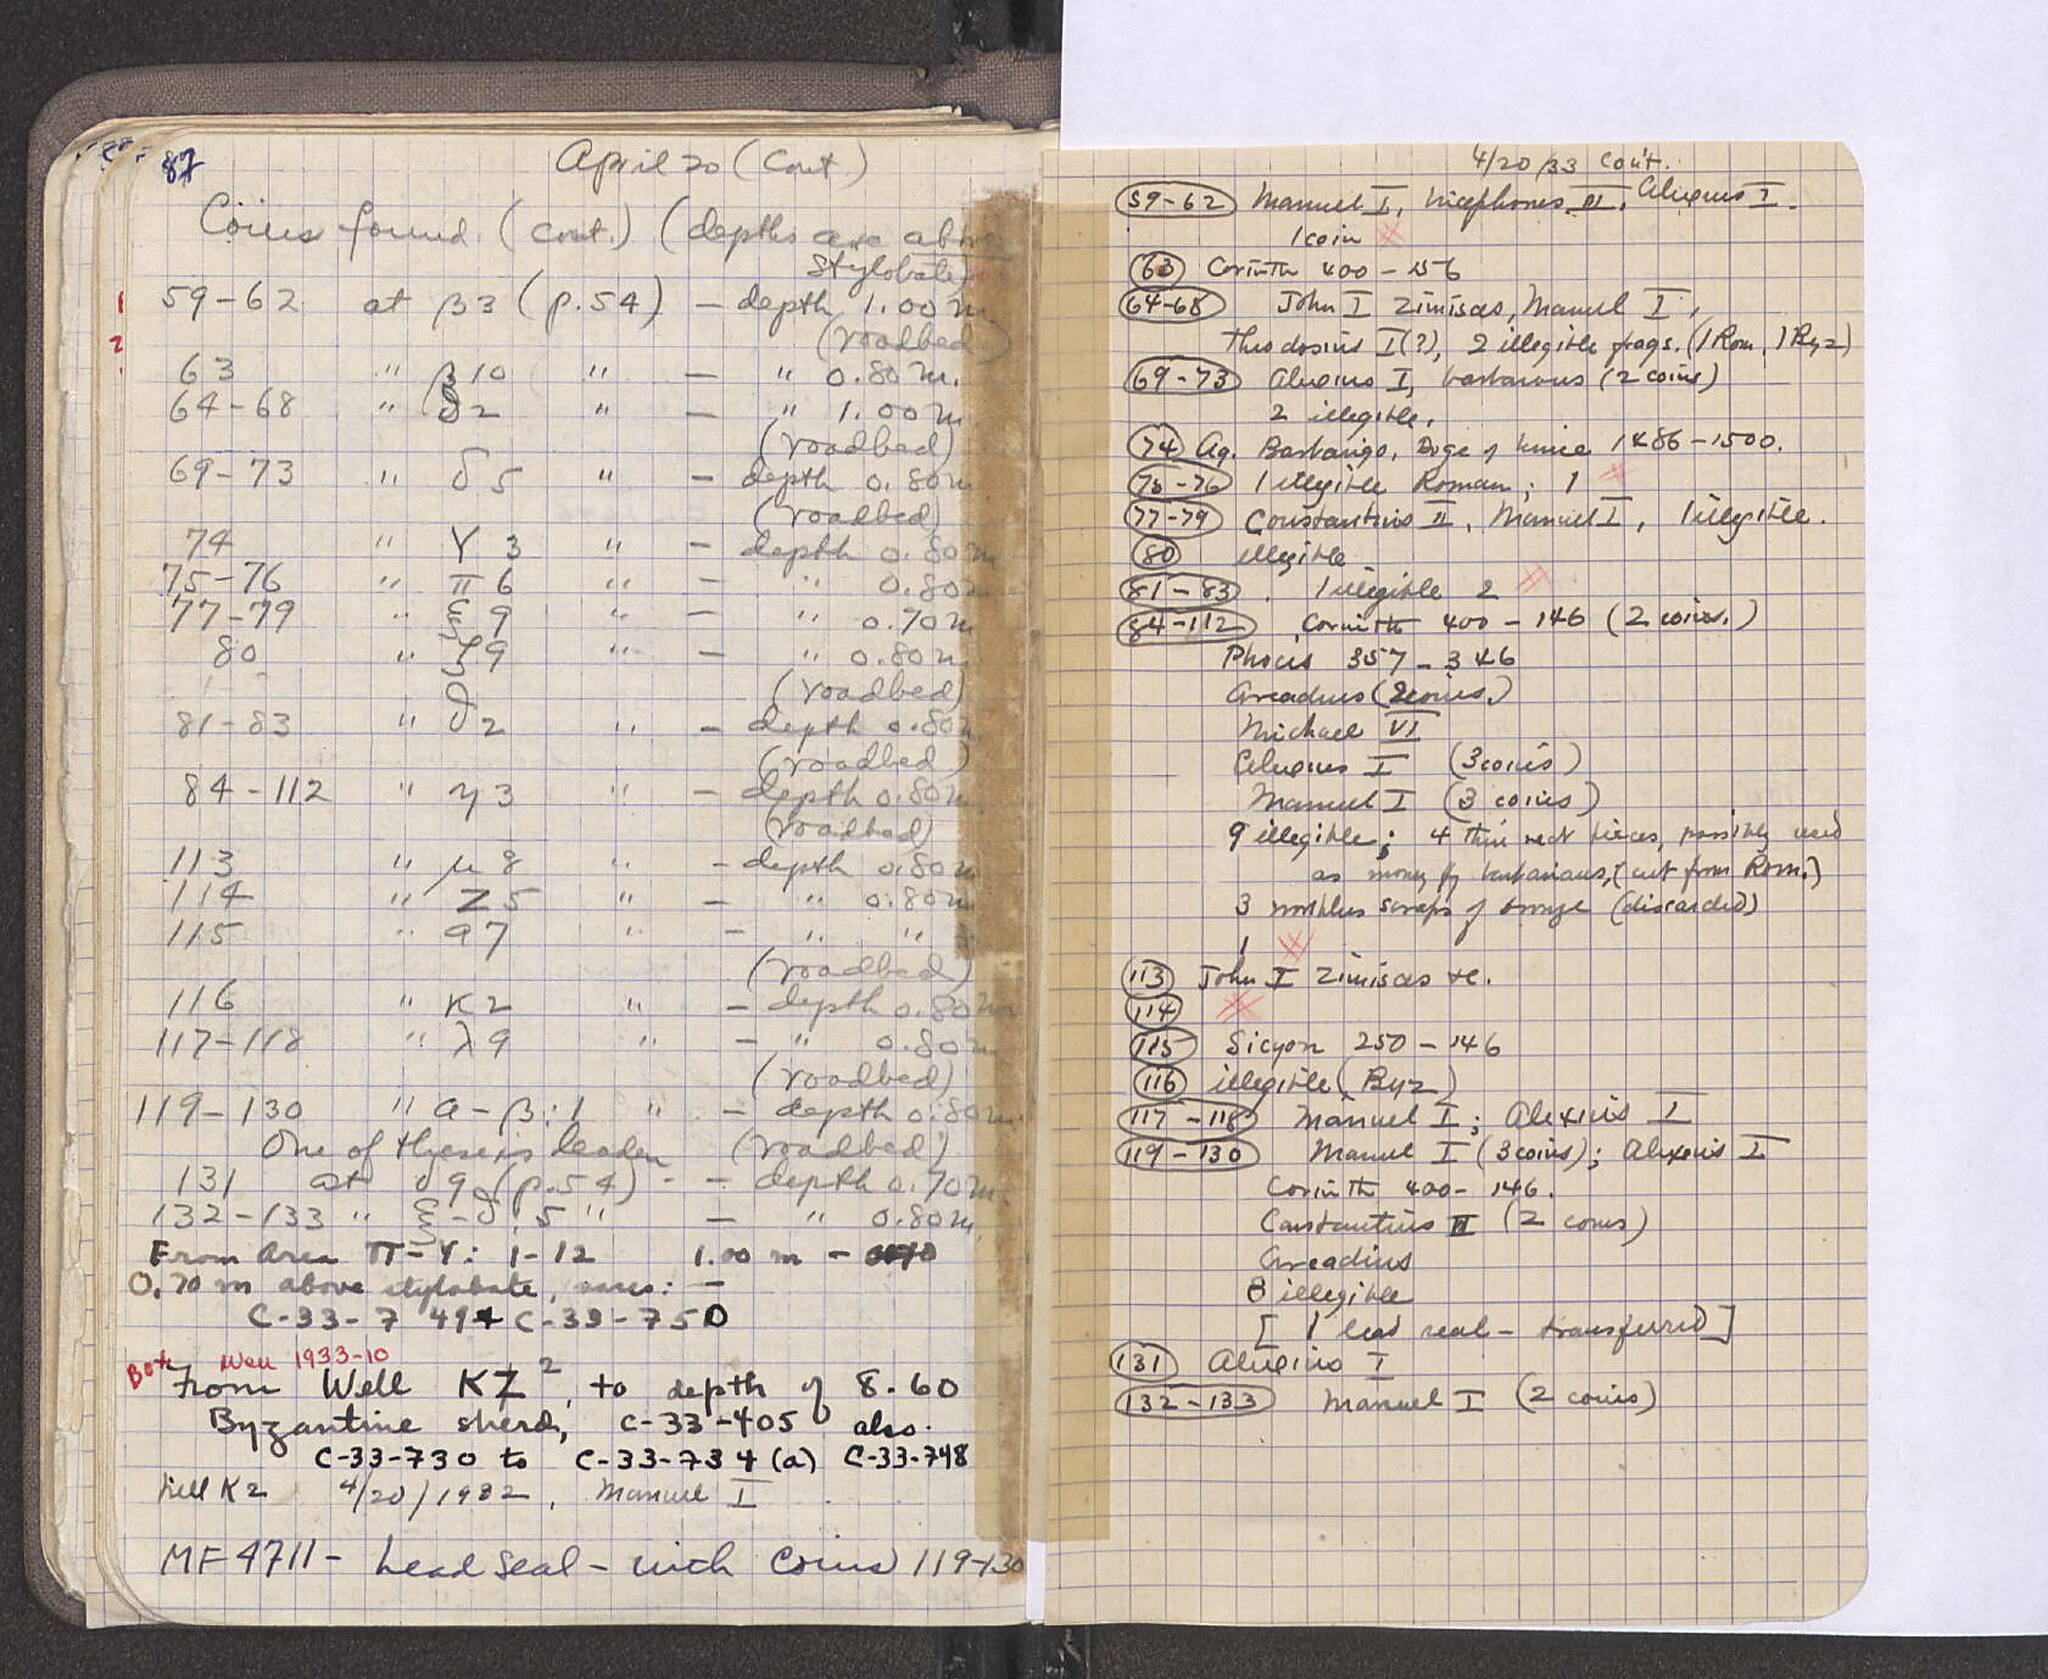 87
April 20 (Cont.)
Coins found (cont.) (depths are above
stylobate)
1 59-62 at β3 (p.54) - depth 1.00 m
2 (roadbed)
63 " β10 " - " 0.80 m.
64-68 " δ2 " - " 1.00 m
(roadbed)
69-73 " δ5 " - depth 0.80 m
(roadbed)
74 " γ3 " - depth 0.80 m
75-76 " π6 " - " 0.80
77-79 " ξ9 " - " 0.70 m
80 " ζ9 " - " 0.80 m
(roadbed)
81-83 " δ2 " - depth 0.80
(roadbed)
84-112 " η3 " - depth 0.80
(roadbed)
113 " μ8 " - depth 0.80 m
114 " Z5 " - " 0.80 m
115 " α7 " - " "
(roadbed)
116 " κ2 " - depth 0.80 m
117-118 " λ9 " - " 0.80
(roadbed)
119-130 " α-β:1 " - depth 0.80 m.
One of these is leaden (roadbed)
131 at 9 (p.54) - - depth 0.70 m.
132-133 " 5 " - " 0.80 m
From Area π-γ: 1-12 1.00 m -
0.70 m above stylobate, vases: -
C-33-749 + C-33-750
Both Well 1933-10
From Well KZ², to depth of 8.60
Byzantine sherds, C-33-405 also.
C-33-730 to C-33-734 (a) C-33-748
Well K2 4/20/1932, Manuel I
MF 4711 - Lead Seal - with Coins 119-130
4/20/33 Con't.
59-62 Manuel I, Nicephorus III, Alexius I.
1 coin #
63 Corinth 400-146
64-68 John I Zimisces, Manuel I,
Theodosius I(?), 2 illegible frags. (1 Rom, 1 Byz)
69-73 Alexius I, barbarous (2 coins)
2 illegible.
74 Ag. Barbarigo, Doge of Venice 1486-1500.
75-76 1 illegible Roman; 1 #
77-79 Constantius II, Manuel I, 1 illegible.
80 illegible
81-83. 1 illegible 2 #
84-112 Corinth 400-146 (2 coins.)
Phocis 357-346
Arcadius (2 coins.)
Michael VI
Alexius I (3 coins)
Manuel I (3 coins)
9 illegible; 4 thin rect pieces, possibly used
as money by barbarians, (cut from Rom.)
3 worthless scraps of bronze (discarded)
1 #
113 John I Zimisces &c.
114 #
115 Sicyon 250-146
116 illegible (Byz)
117-118 Manuel I; Alexius I
119-130 Manuel I (3 coins); Alexius I
Corinth 400-146.
Constantius II (2 coins)
Arcadius
8 illegible
[ 1 lead seal - transferred ]
131 Alexius I
132-133 Manuel I (2 coins)